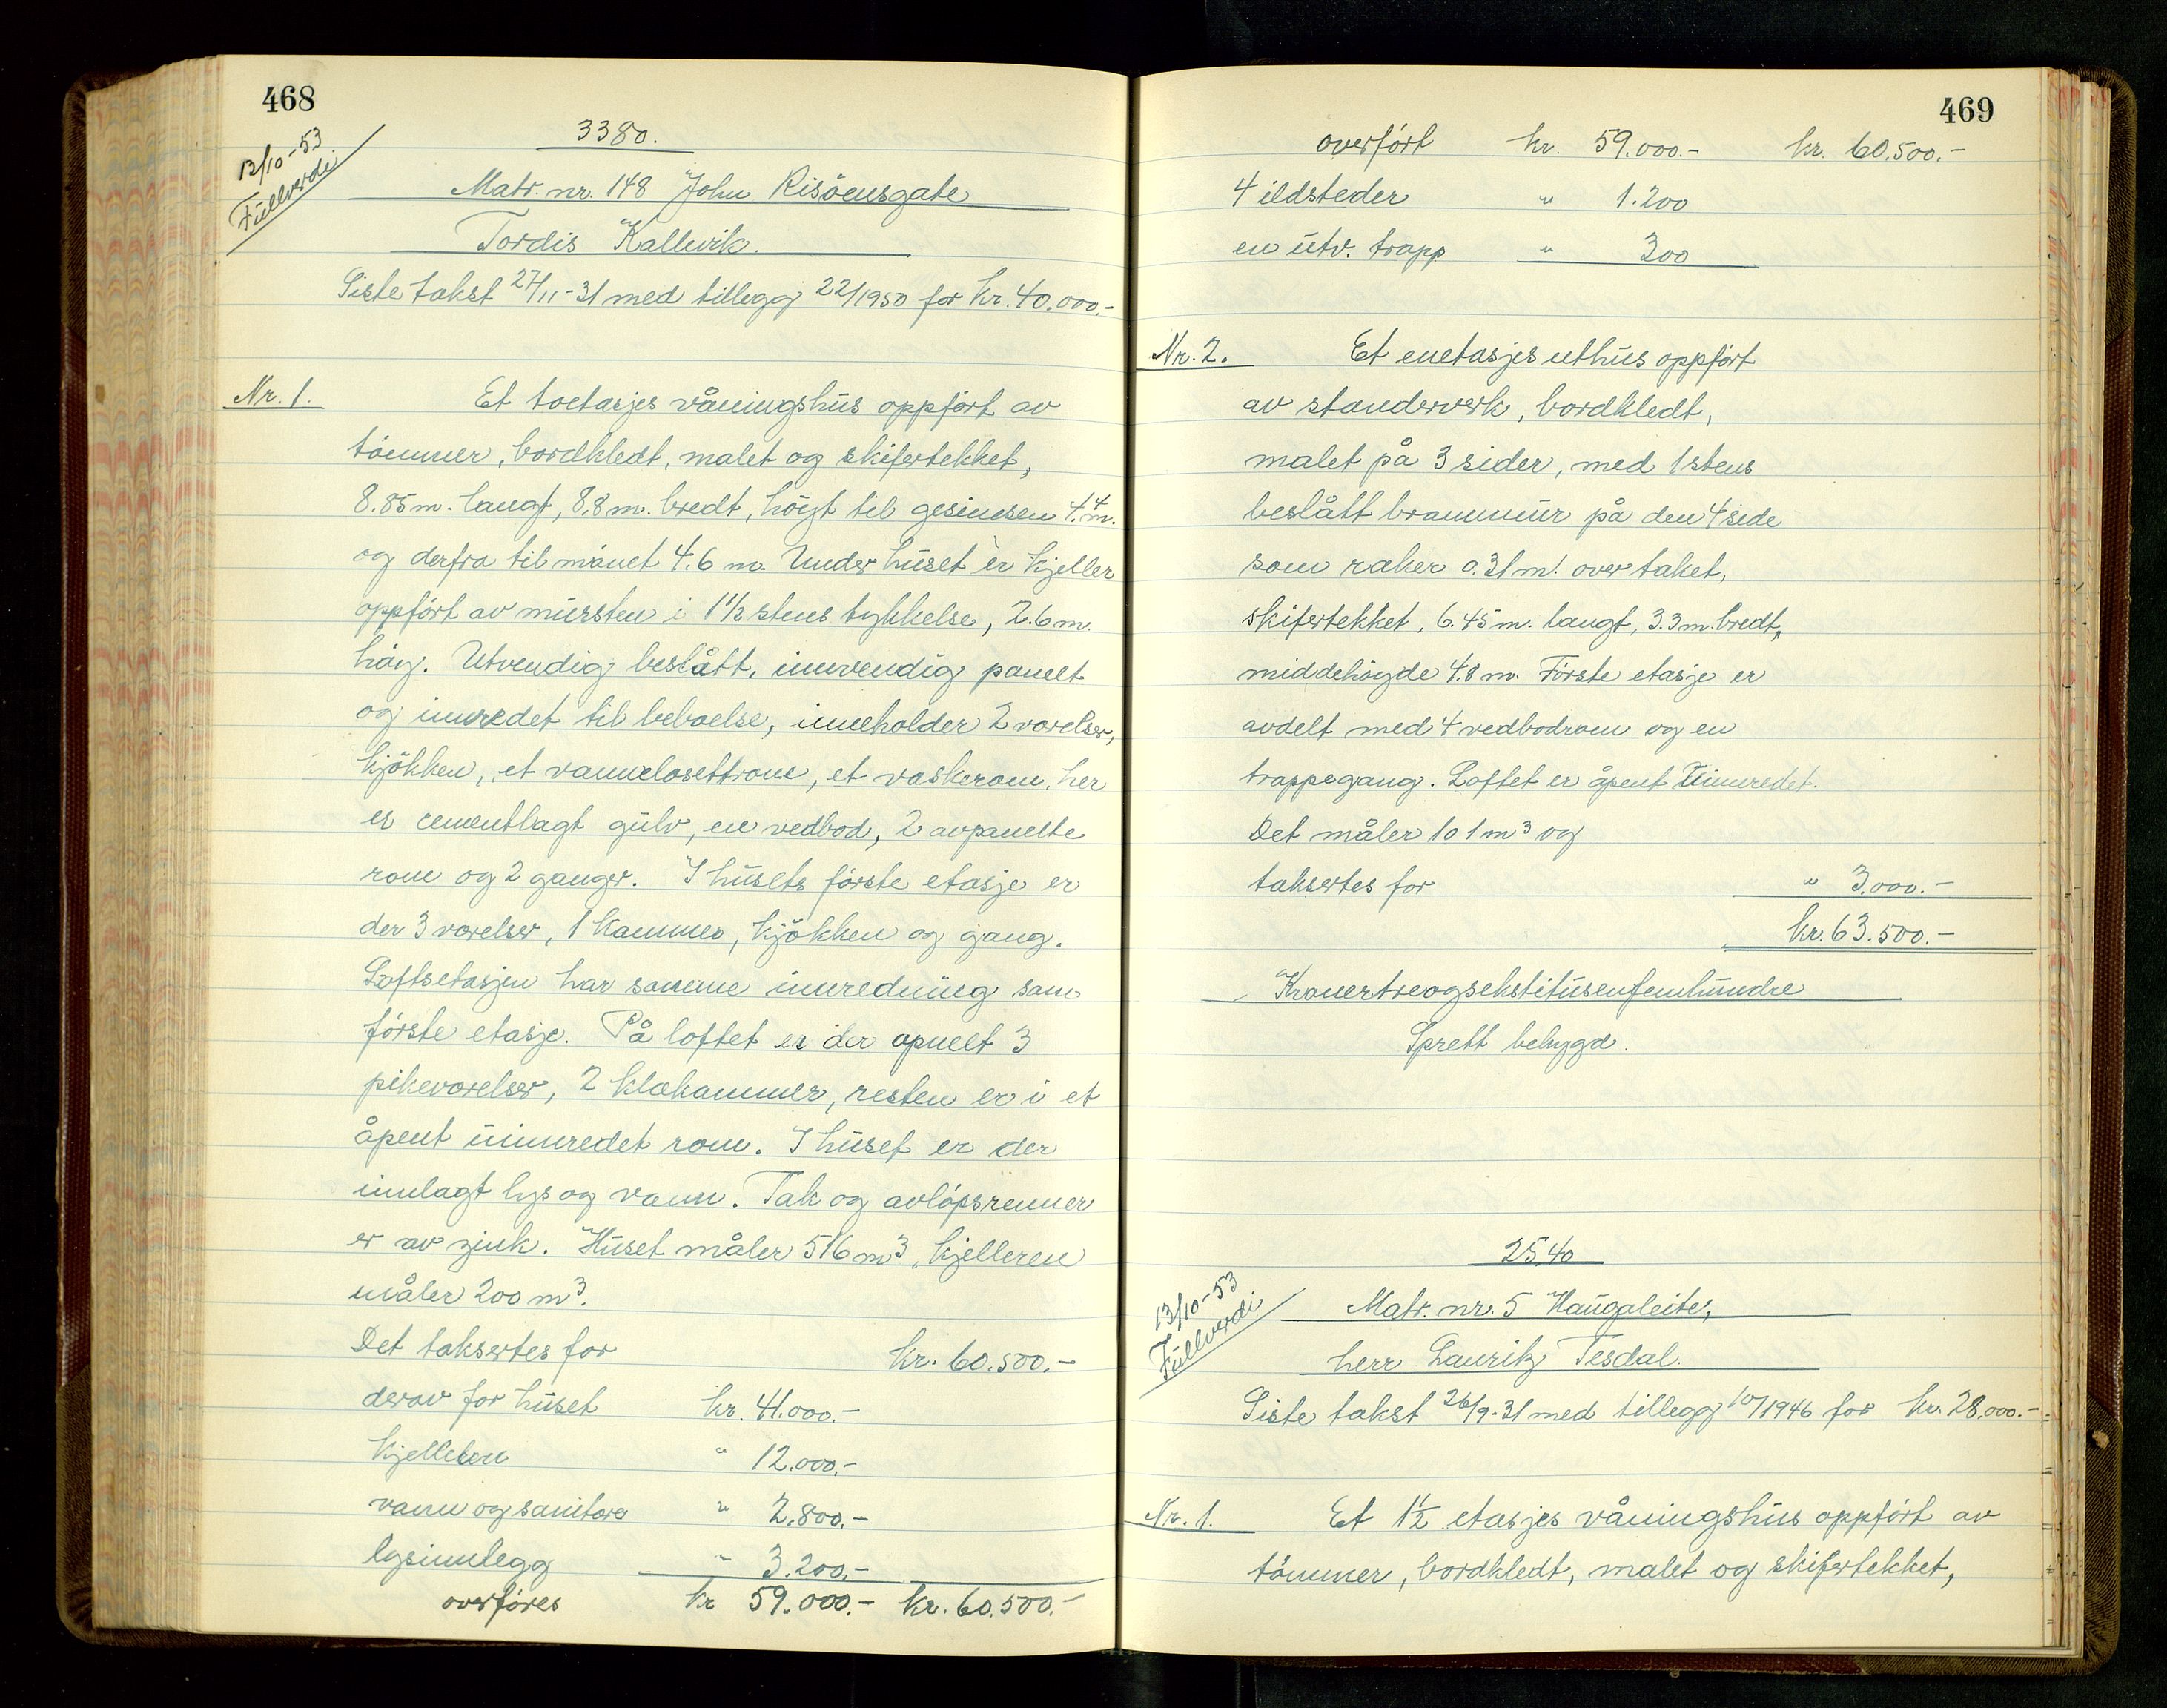 468
13/10-53
Fullverdi
3380.
Matr. nr. 148 John Risöensgate
Tordis Kallevik.
Siste takst 27/11-31 med tillegg 22/1950 for kr. 40.000.-
Nr. 1. Et toetasjes våningshus oppfört av
tömmer, bordkledt, malet og skifertekket,
8.85 m. langt, 8.8 m. bredt, höigt til gesimsen 4.4 m.
og derfra til mönet 4.6 m. Under huset er kjeller
oppfört av mursten i 1 1/2 stens tykkelse, 2.6 m.
höy. Utvendig beslått, innvendig panelt
og innredet til beboelse, inneholder 2 værelser,
kjökken, et vannclosettrom, et vaskerom, her
er cementlagt gulv, en vedbod, 2 avpanelte
rom og 2 ganger. I husets förste etasje er
der 3 værelser, 1 kammer, kjökken og gang.
Loftsetasjen har samme innredning som
förste etasje. På loftet er der apnelt 3
pikeværelser, 2 klækammer, resten er i et
åpent uinnredet rom. I huset er der
innlagt lys og vann. Tak og avlöpsrenner
er av zink. Huset måler 516 m3, kjelleren
måler 200 m3.
Det takseres for kr. 60.500.-
derav for huset kr. 41.000.-
kjelleren " 12.000.-
vann og sanitære " 2.800.-
lysinnlegg " 3.200.-
overföres kr 59.000.- kr. 60.500.-
469
overfört kr. 59.000.- kr. 60.500.-
4 ildsteder " 1.200
en utv. trapp " 300
Nr. 2. Et enetasjes uthus oppfört
av standerverk, bordkledt,
malet på 3 sider, med 1 stens
beslått brannmur på den 4 side
som raker 0.31 m. over taket,
skifertekket, 6.45 m. langt, 3.3 m. bredt,
middehöyde 4.8 m. Förste etasje er
avdelt med 4 vedbodrom og en
trappegang. Loftet er åpent Uinnredet.
Det måler 101 m3 og
taksertes for " 3.000.-
kr. 63.500.-
Kronertreogsekstitusenfemhundre
Sprett bebygd.
2540
13/10-53
Fullverdi
Matr. nr. 5 Haugaleite,
herr Laurik Tesdal.
Siste takst 26/9-31 med tillegg 10/1946 for kr. 28.000.-
Nr. 1. Et 1 1/2 etasjes våningshus oppfört av
tömmer, bordkledt, malet og skifertekket,